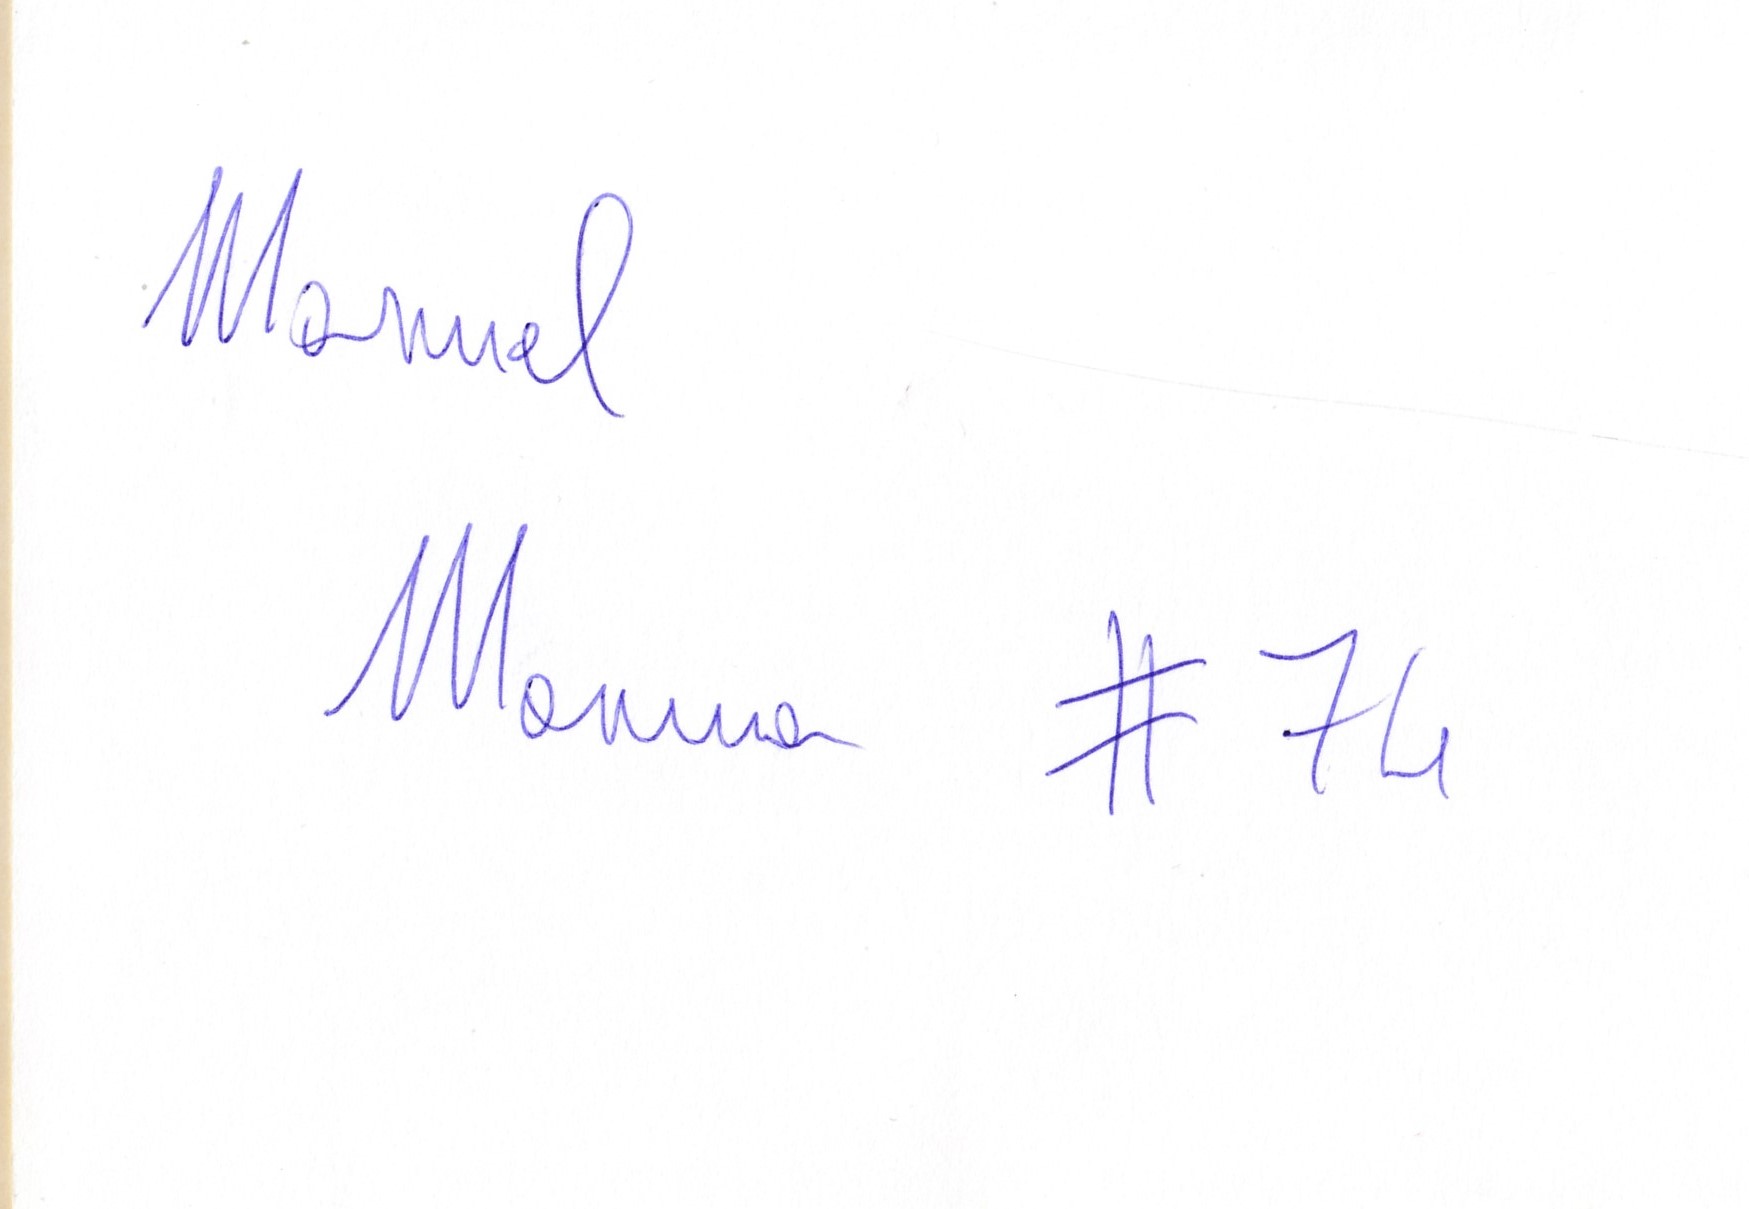 Manuel
Manna #74